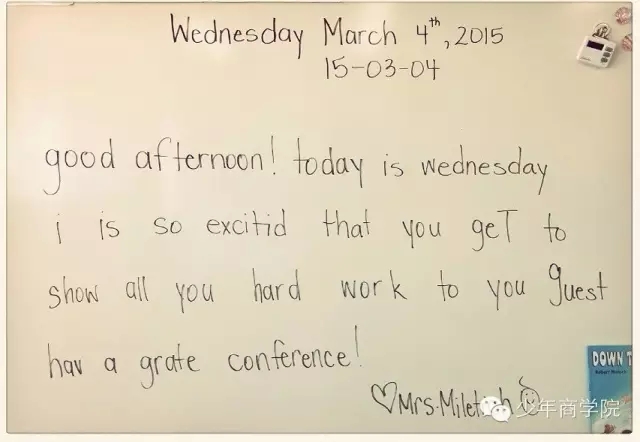 Wednesday March 4th, 2015
15-03-04
good afternoon! today is wednesday
i is so excitid that you geT to
show all you hard work to you guest
hav a grate conference!
DOWN
♡Mrs.
少年商学院